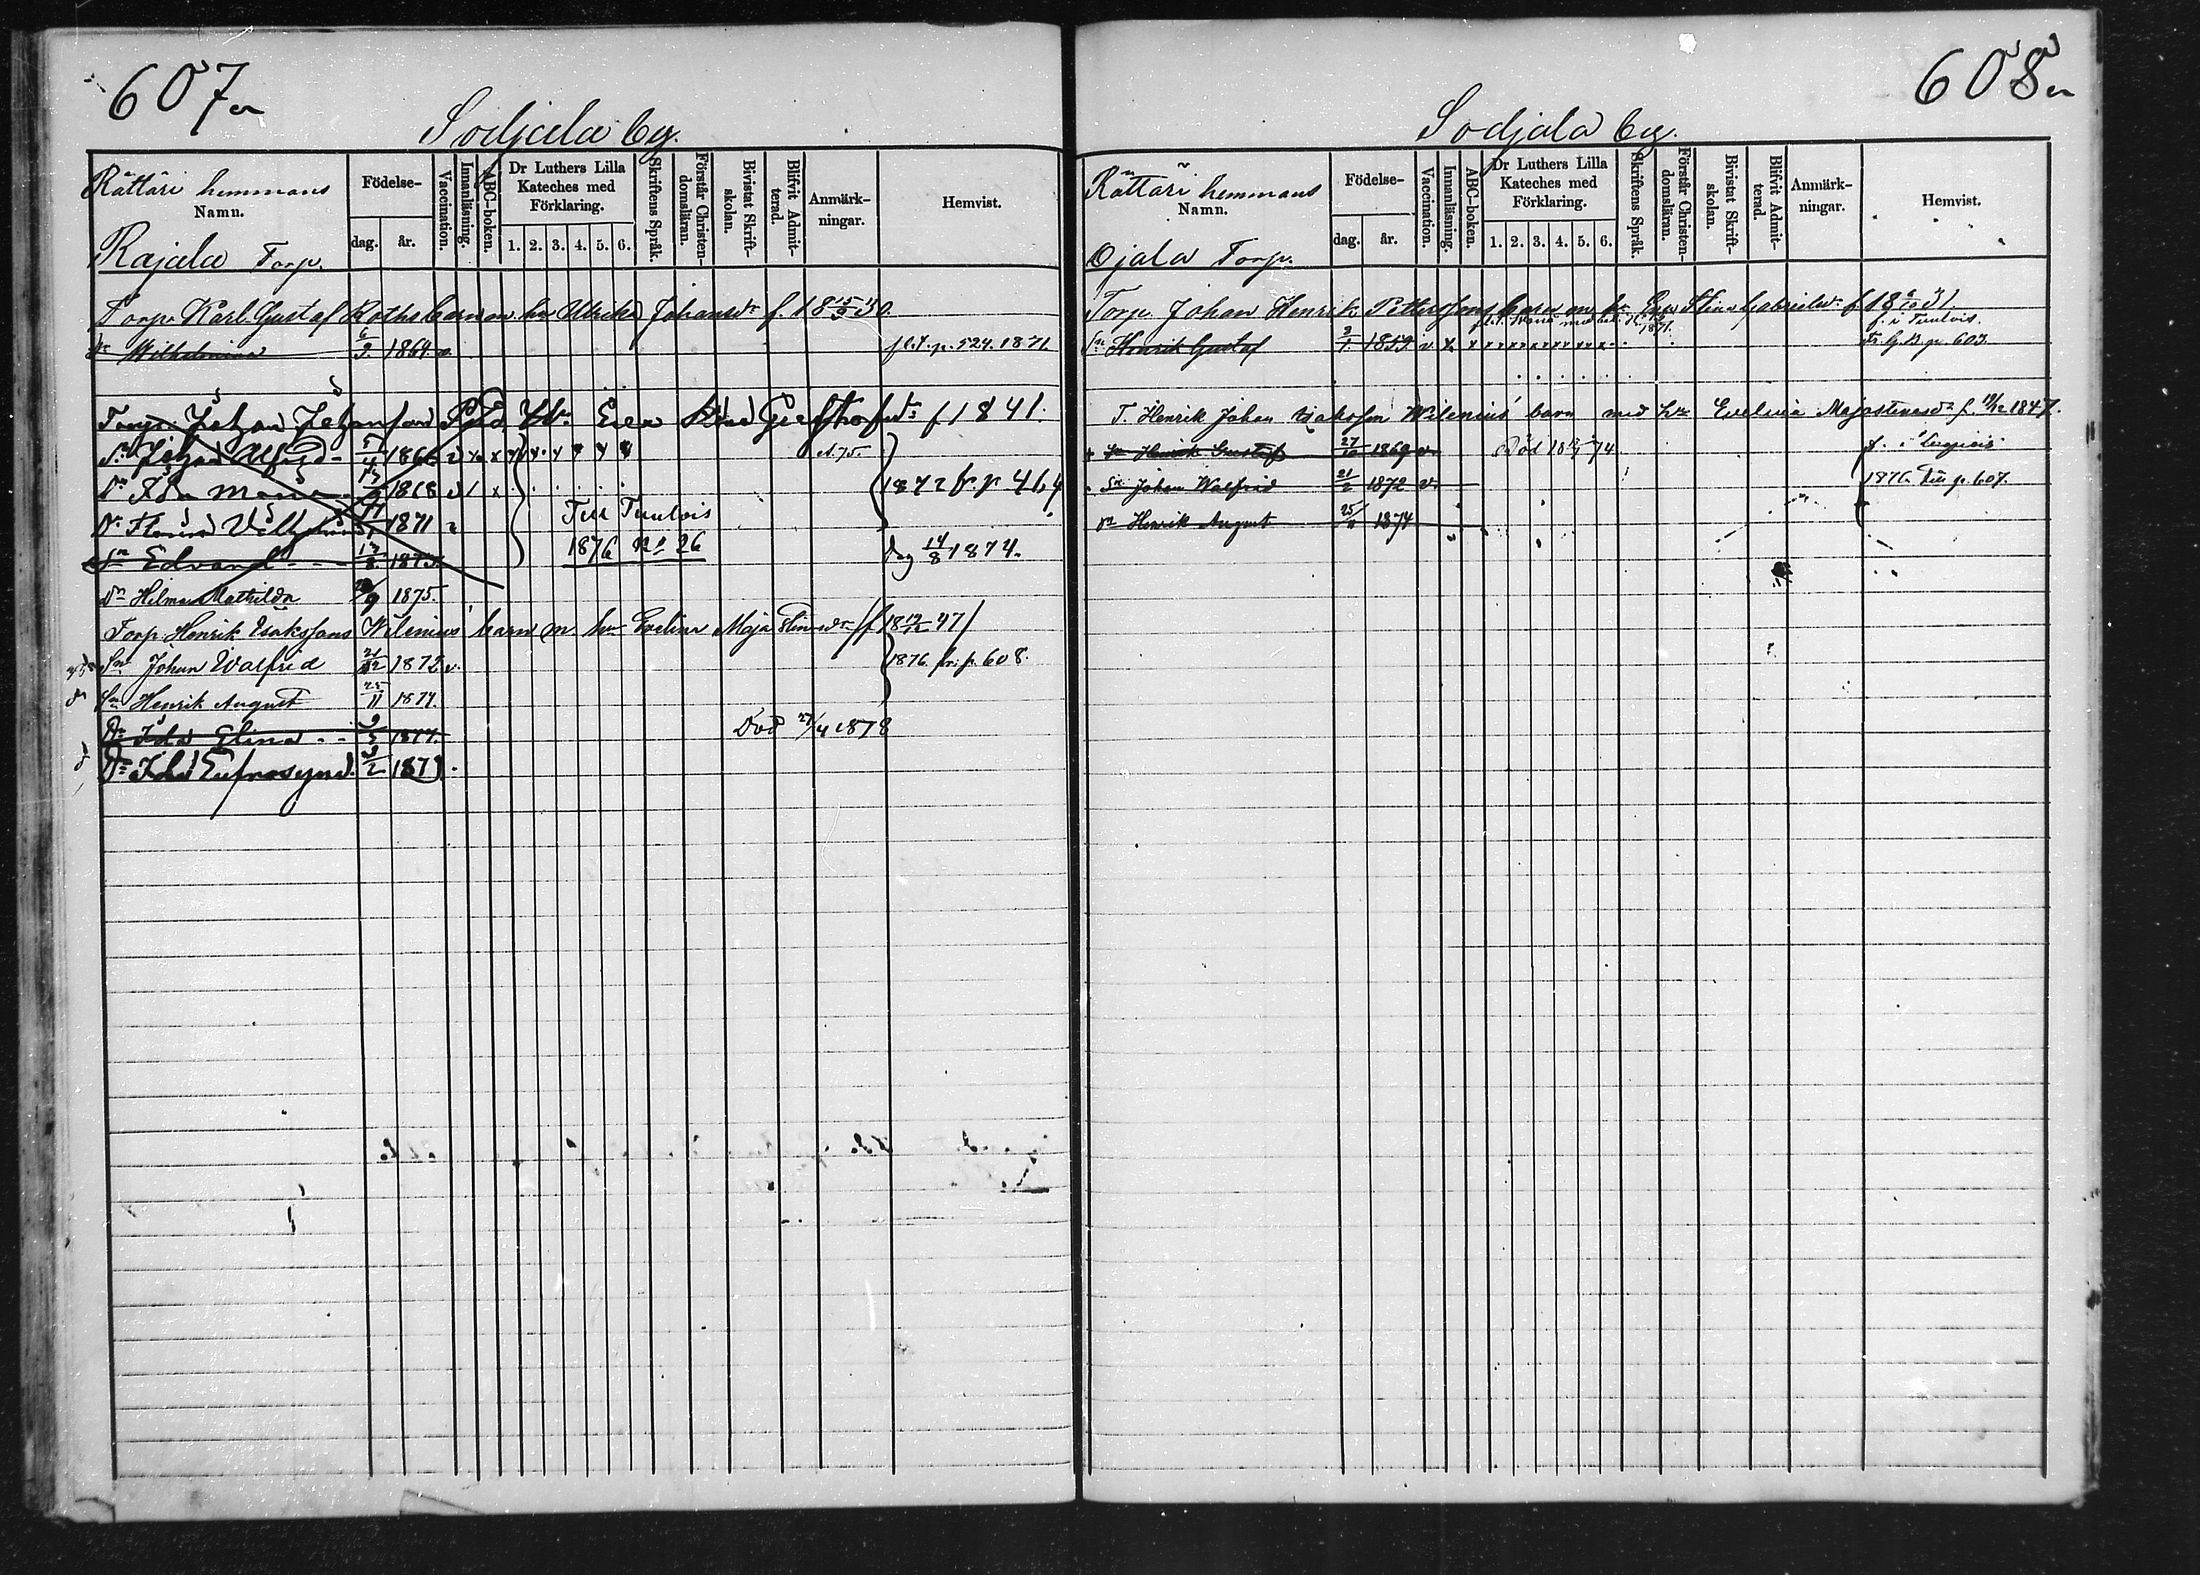 607
Sodjala by.
Rättäri hemmans
Namn.
Födelse-
dag. år.
Vaccination.
Innanläsning.
ABC-boken.
Dr Luthers Lilla
Kateches med
Förklaring.
1. 2. 3. 4. 5. 6.
Skriftens Språk.
Förstår Christen-
domsläran.
Bivistat Skrift-
skolan.
Blifvit Admit-
terad.
Anmärk-
ningar.
Hemvist.
Rajala Torp.
Torp. Karl Gustaf Roths barn m. hu Ulrika Johansdr f. 18 15/5 30.
Dr Wilhelmina 6/9 1864 v. fl. t. p. 524. 1871
Torp. Johan Johansson Hu Eva f 1841.
Sn Johan Alfred 1866 v x x
Dr Ida Maria 1868 v 1 x 1872 fr. p. 464
Dr 1871 v Till Tuulois
Sn Edvard 17/8 1873 1876 No 26 14/8 1874.
Dr Hilma Mathilda /9 1875.
Torp. Henrik Isakssons Wilenius' barn m. hu Evelina Maja Stinasdr (f 18 12/12 47)
Sn Johan Walfrid 21/2 1872 v. 1876. fr. p. 608.
Sn Henrik August 25/11 1874.
Dr Ida Elina 1877. Död 27/4 1878
Dr Ida Eufrosyna 3/2 1879.
608
Sodjala by.
Rättäri hemmans
Namn.
Födelse-
dag. år.
Vaccination.
Innanläsning.
ABC-boken.
Dr Luthers Lilla
Kateches med
Förklaring.
1. 2. 3. 4. 5. 6.
Skriftens Språk.
Förstår Christen-
domsläran.
Bivistat Skrift-
skolan.
Blifvit Admit-
terad.
Anmärk-
ningar.
Hemvist.
Ojala Torp.
Torp. Johan Henrik Petterssons barn m. hu Eva Stina Gabrielsdr f. 18 31
1871. f. i Tuulois.
Sn Henrik Gustaf 3/1 1859. v x x x x x x x x x Fr. G. B. p. 603.
T. Henrik Johan Isaksson Wilenius' barn med hu Evelina Majastinasdr f. 12/12 1847.
Sn Henrik Gustaf 27/10 1869 v. Död 18 74
Sn Johan Walfrid 21/2 1872 v. 1876 Till p. 607.
Sn Henrik August 25/11 1874